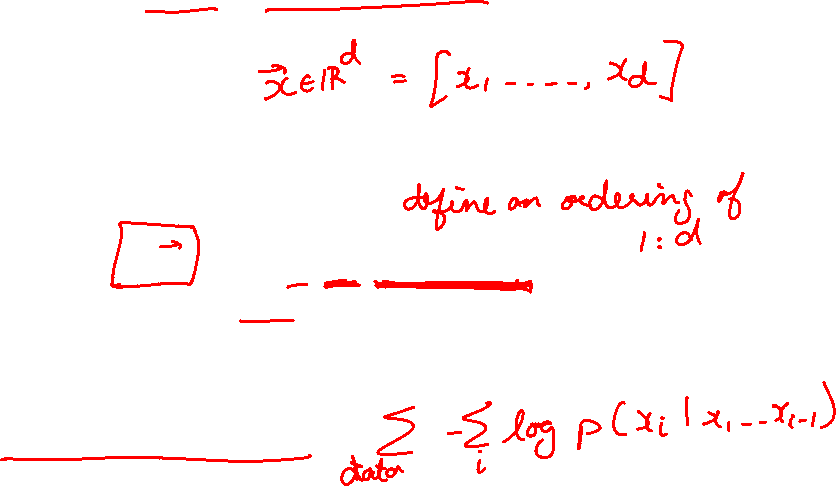 x⃗ ∈ ℝ^d = [x_1 ----, x_d]
define an ordering of
1:d
∑_data -∑_i log p(x_i | x_1 -- x_{i-1})